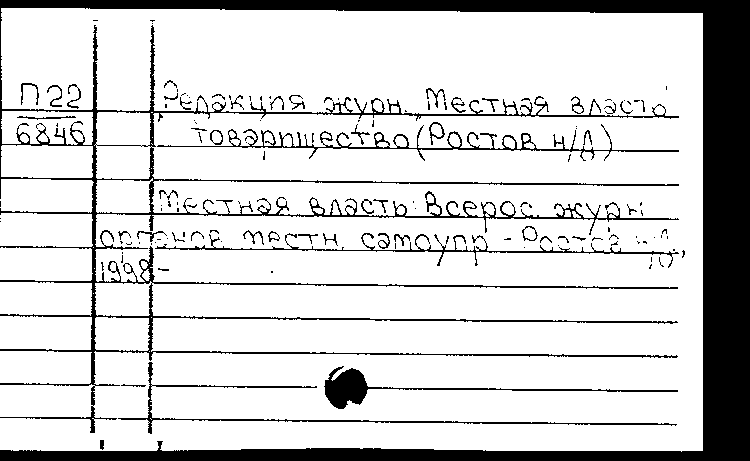 П22
6846
Редакция журн. "Местная власть"
товарищество (Ростов н/Д)
Местная власть: Всерос. журн
органов местн. самоупр - Ростов н/Д,
1998-